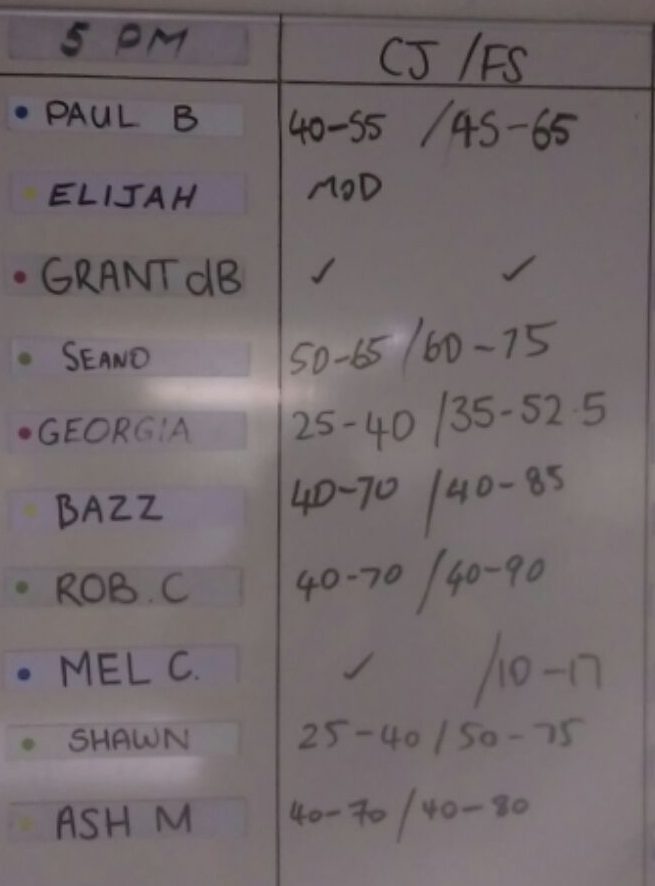 5 PM CJ /FS
• PAUL B 40-55 /45-65
• ELIJAH MOD
• GRANT dB ✓ ✓
• SEANO 50-65 /60-75
• GEORGIA 25-40 /35-52.5
• BAZZ 40-70 /40-85
• ROB.C 40-70 /40-90
• MEL C. ✓ /10-17
• SHAWN 25-40 /50-75
• ASH M 40-70 /40-80